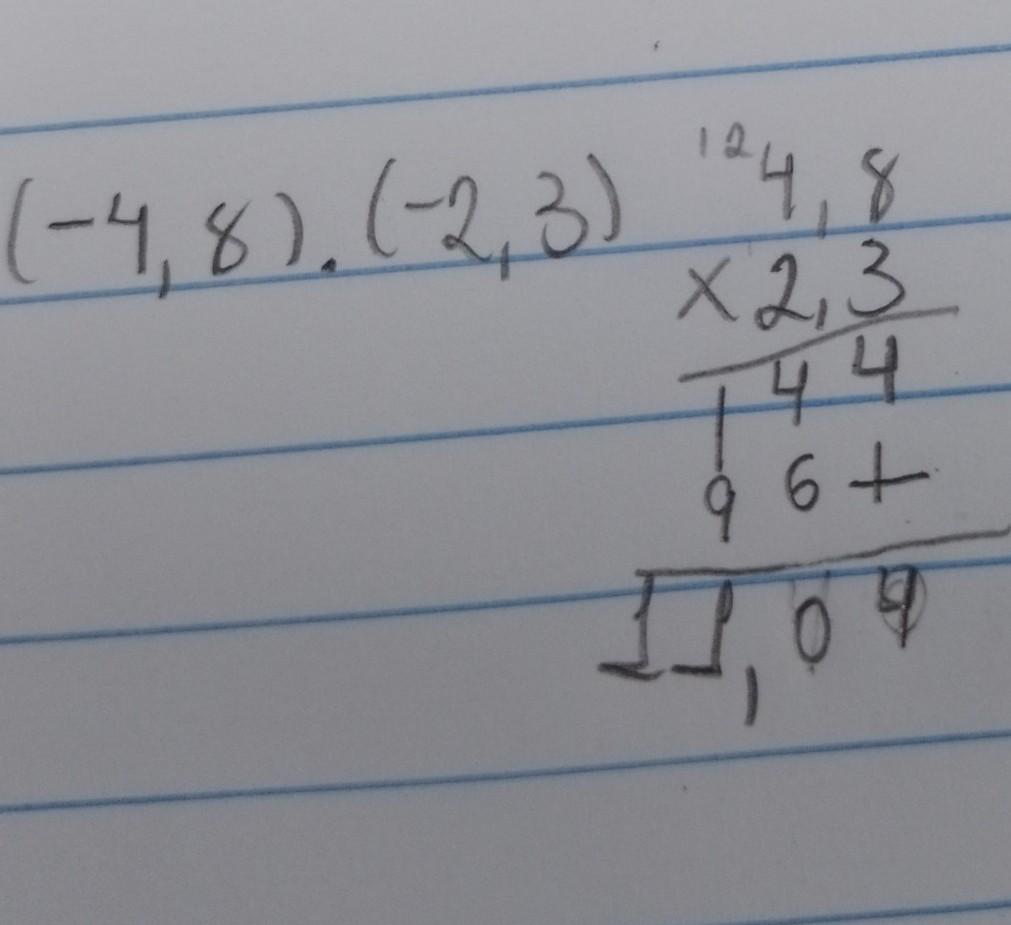 (-4,8).(-2,3) 12 4,8
x 2,3
144
96+
11,04